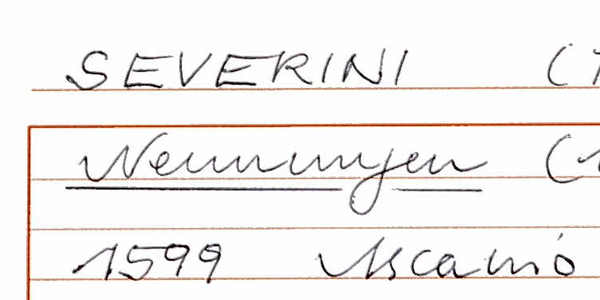 SEVERINI (1
Nennungen (1
1599 Ascanio